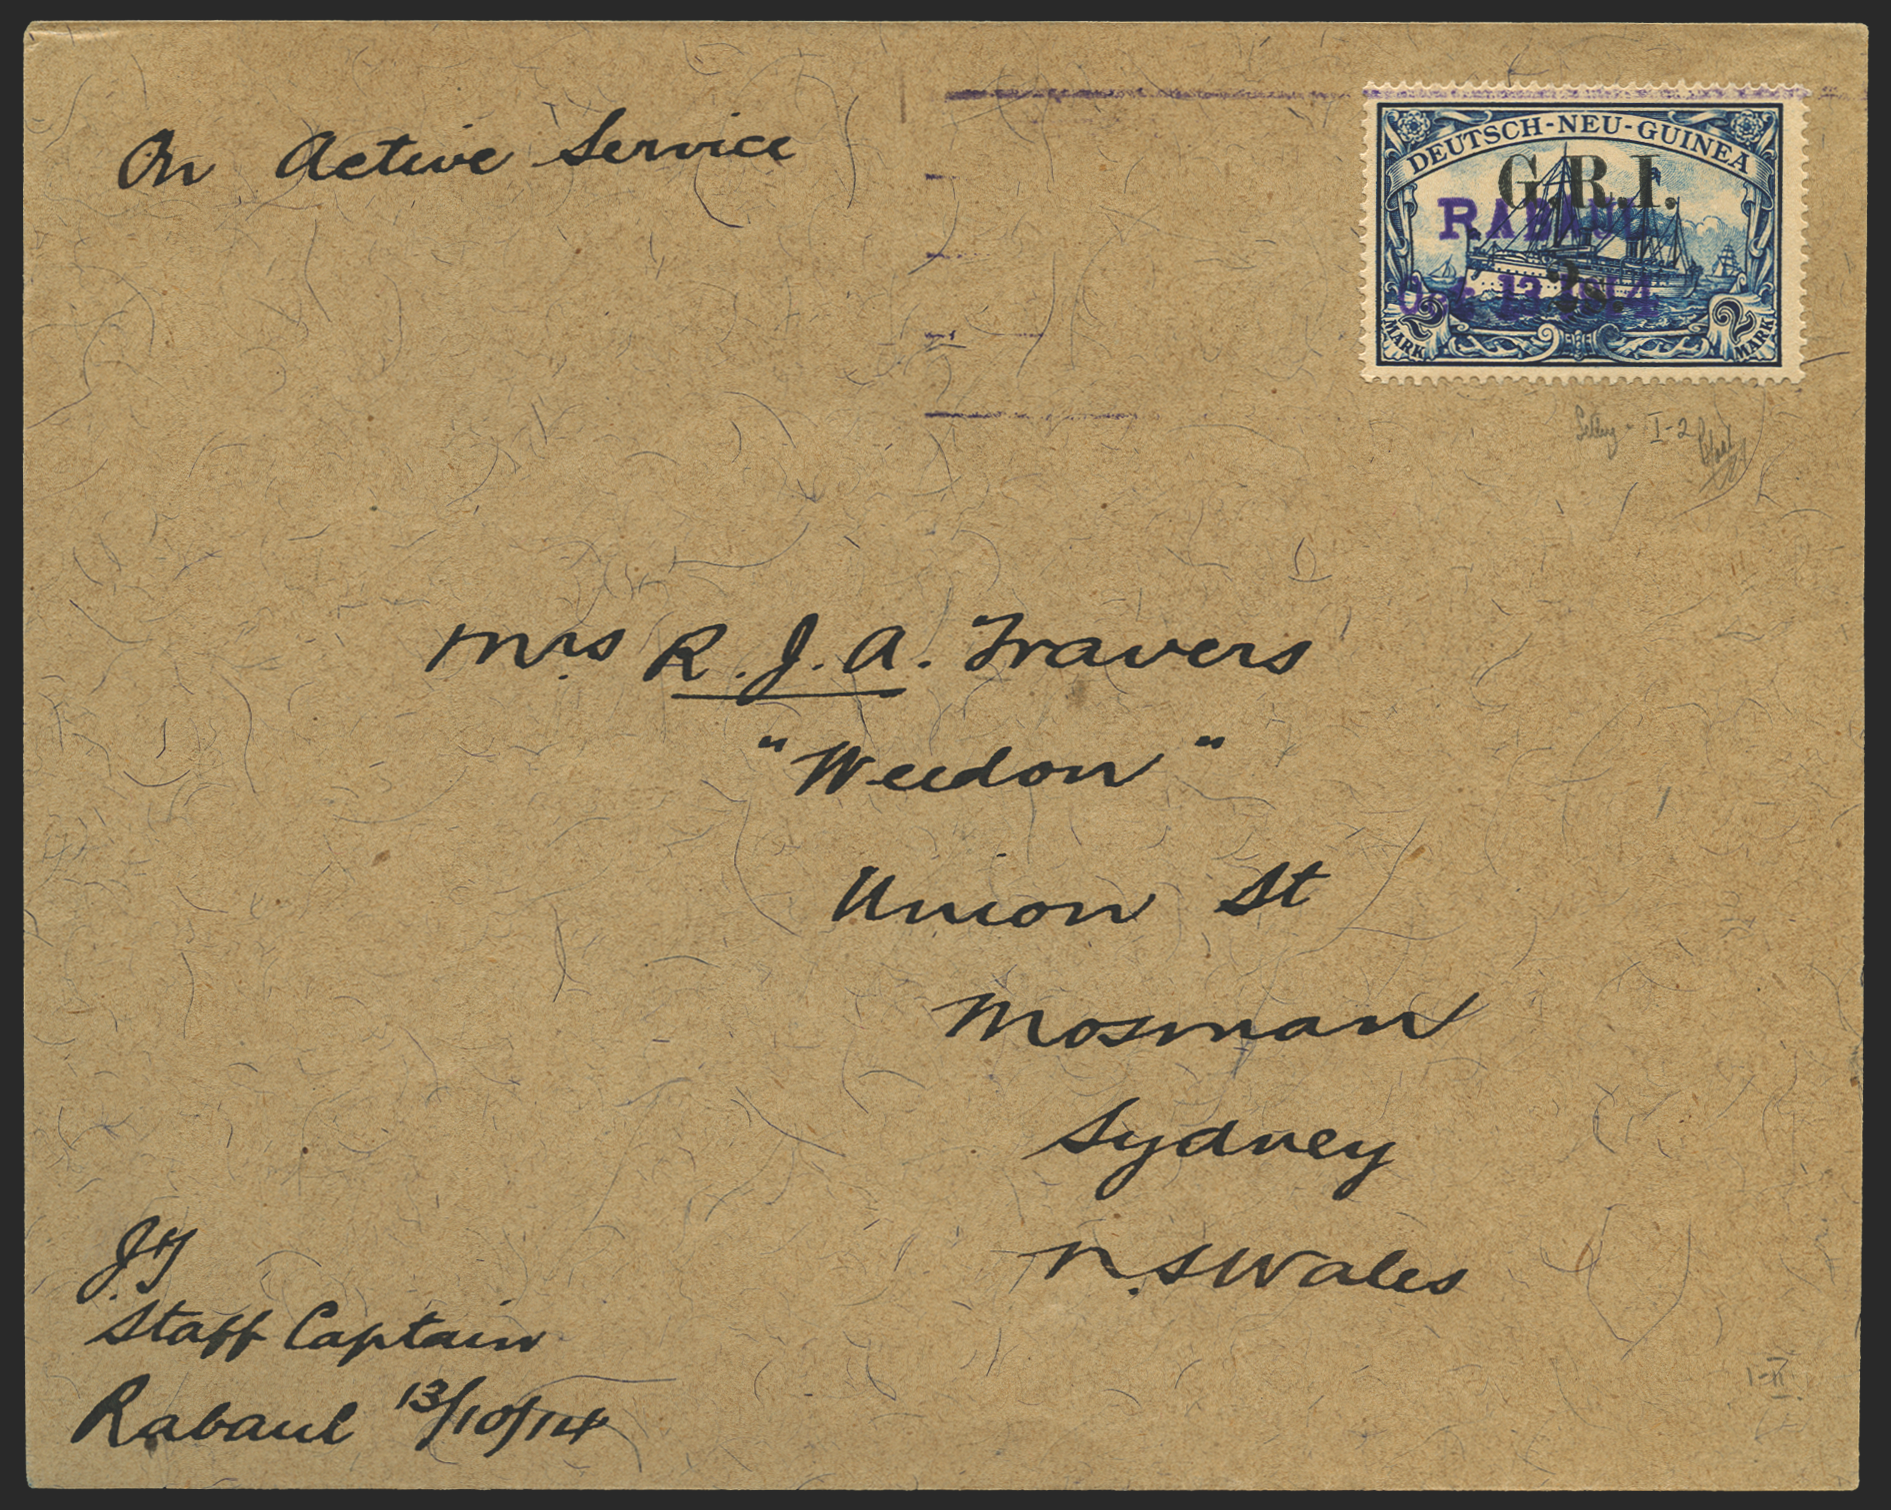 On Active Service
DEUTSCH-NEU-GUINEA
G.R.I.
RABAUL
2s.
Oct 13 1914
2 MARK
2 MARK
I-2
Mrs R.J.A. Travers
"Weedon"
Union St
Mosman
Sydney
N.SWales
JT
Staff Captain
Rabaul 13/10/14